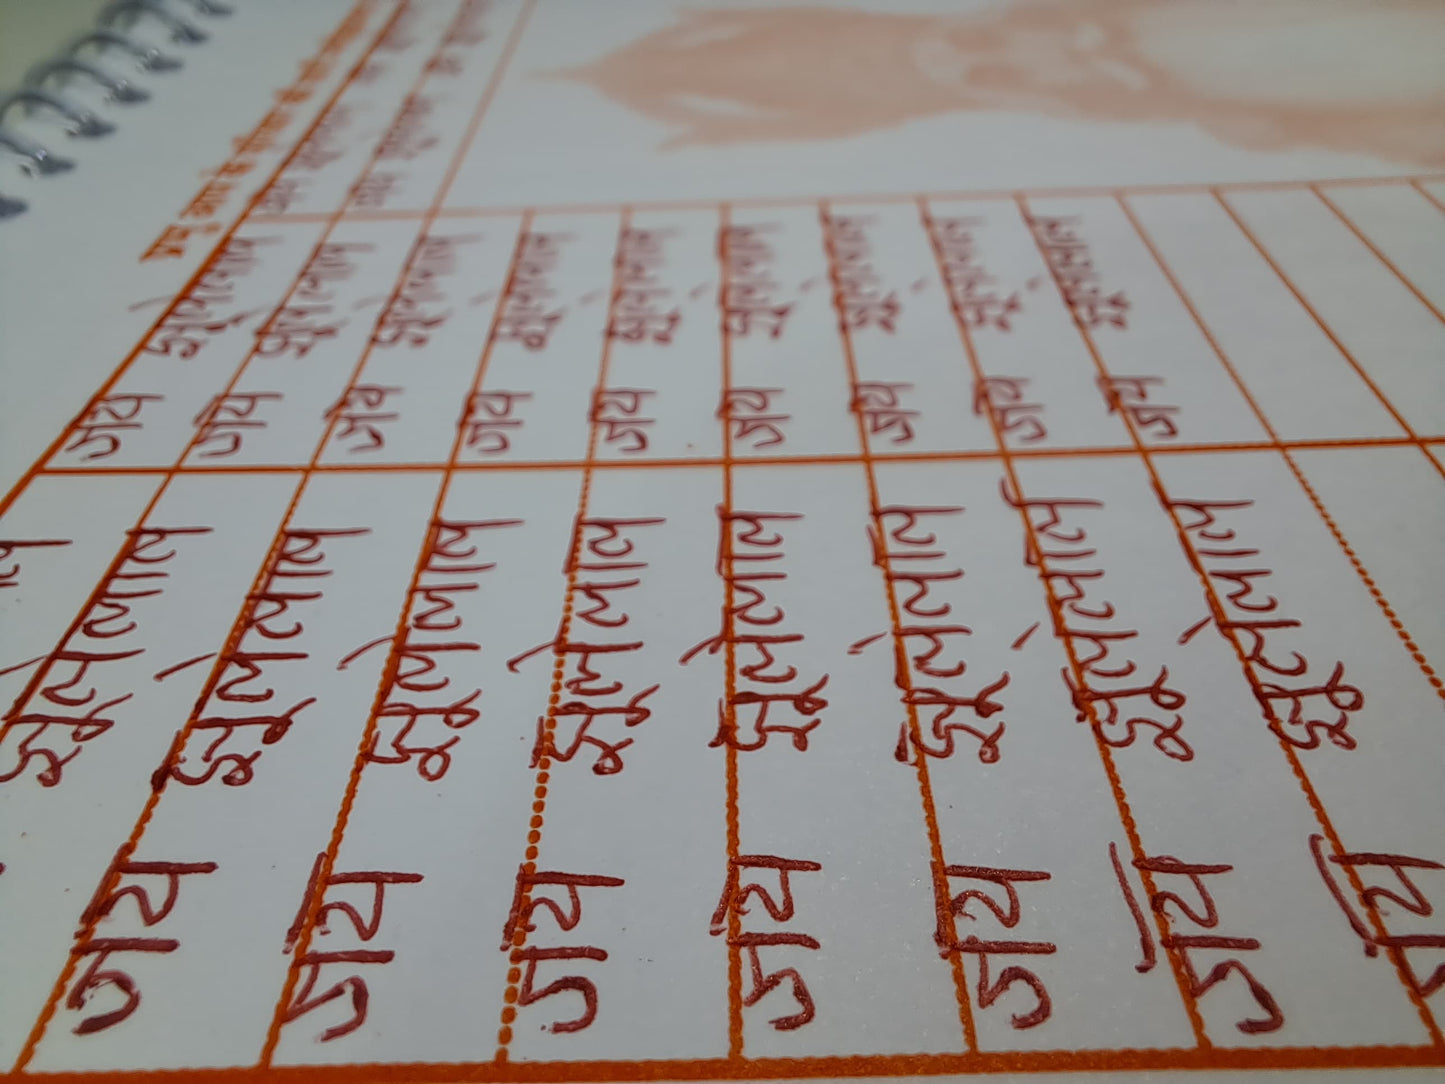 जय झूलेलाल
झूलेलाल जय झूलेलाल
जय झूलेलाल जय झूलेलाल
जय झूलेलाल जय झूलेलाल
जय झूलेलाल जय झूलेलाल
जय झूलेलाल जय झूलेलाल
जय झूलेलाल जय झूलेलाल
जय झूलेलाल जय झूलेलाल
जय झूलेलाल जय झूलेलाल